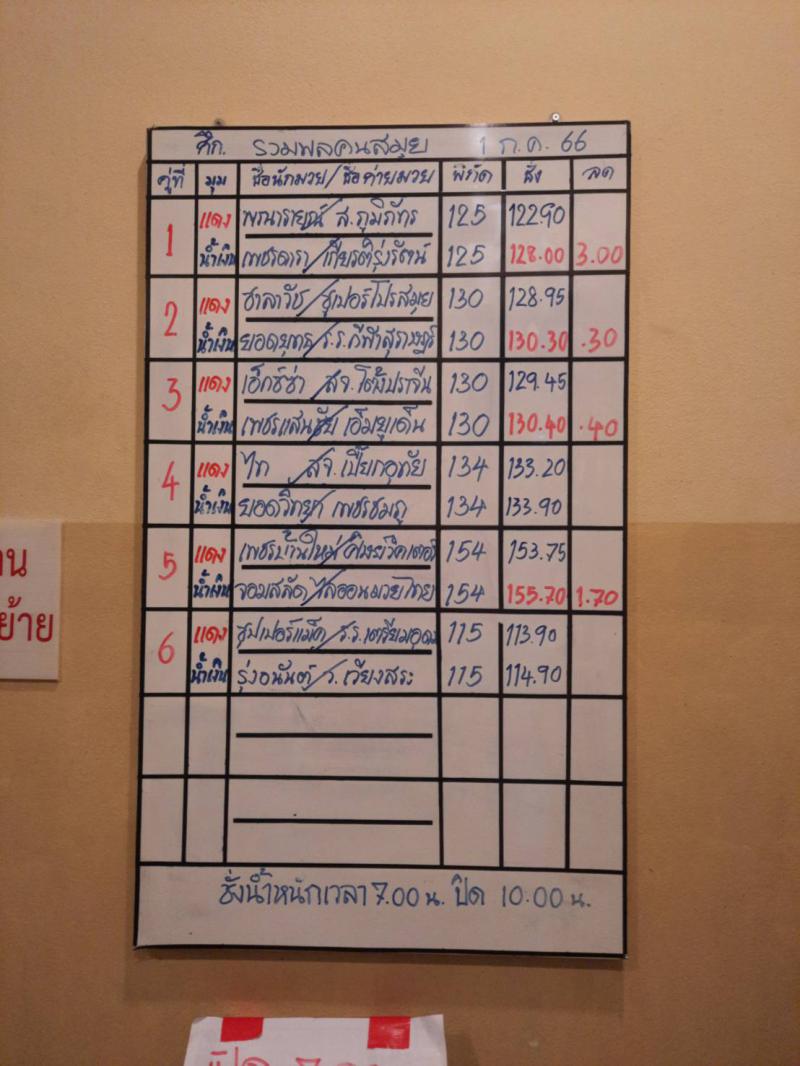 ศึก. รวมพลคนสมุย 1 ก.ค. 66
คู่ที่ มุม ชื่อนักมวย/ชื่อค่ายมวย พิกัด ชั่ง ลด
1 แดง พรนารายณ์ ส.ภูมิภัทร 125 122.90
น้ำเงิน เพชรดารา/เกียรติรุ่งรัตน์ 125 128.00 3.00
2 แดง ชาลาวัช/ซุปเปอร์โปรสมุย 130 128.95
น้ำเงิน ยอดบุตร/ร.ร.กีฬาสุราษฎร์ 130 130.30 .30
3 แดง เอ็กซ์ซ่า/สจ.โต้งปราจีน 130 129.45
น้ำเงิน เพชรแสนชัย เอ็มยูเด็น 130 130.40 .40
4 แดง ไท/สจ.เปี๊ยกอุทัย 134 133.20
น้ำเงิน ยอดวิทยา เพชรชมภู 134 133.90
5 แดง เพชรบ้านใหม่/ 154 153.75
น้ำเงิน จอมสลัด/ไลออนมวยไทย 154 155.70 1.70
6 แดง ซุปเปอร์แม็ค/ร.ร.เตรียมอุดม 115 113.90
น้ำเงิน รุ่งอนันต์/ร.เวียงสระ 115 114.90
ชั่งน้ำหนักเวลา 7.00 น. ปิด 10.00 น.
ย้าย